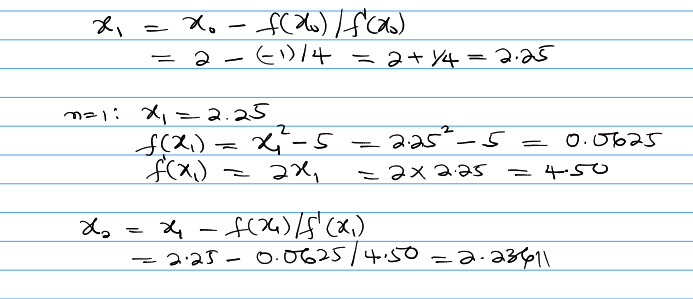 x₁ = x₀ − f(x₀)/f'(x₀)
= 2 − (−1)/4 = 2 + 1/4 = 2.25
n=1: x₁ = 2.25
f(x₁) = x₁² − 5 = 2.25² − 5 = 0.0625
f'(x₁) = 2x₁ = 2 × 2.25 = 4.50
x₂ = x₁ − f(x₁)/f'(x₁)
= 2.25 − 0.0625/4.50 = 2.23611